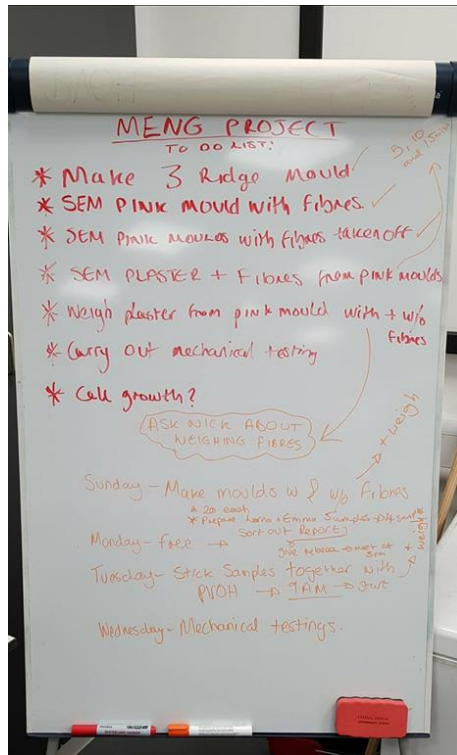 MENG PROJECT
TO DO LIST:
5, 10
and 15min
* Make 3 Ridge Mould ✓
* SEM PINK MOULD with fibres. ✓
* SEM PINK MOULDS with fibres taken off ✓
* SEM PLASTER + Fibres from PINK MOULDS
* Weigh plaster from pink mould with + w/o
Fibres
* Carry out mechanical testing
* Cell growth?
ASK NICK ABOUT
WEIGHING FIBRES
+ weigh
Sunday - Make moulds w & w/o Fibres
* 20 each
* Prepare + Emma Samples
Sort out Report
Monday - free →
meet at
Tuesday - Stick Samples together with
PVOH → 9AM → Start
+ weigh
Wednesday - Mechanical testings.